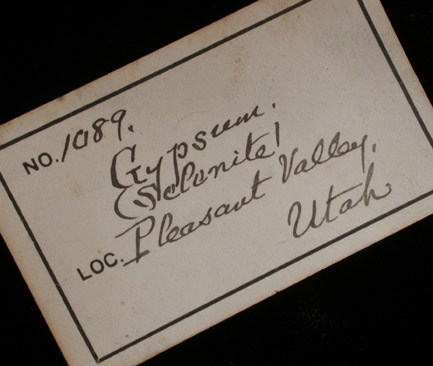 NO. 1089.
Gypsum.
(Selenite)
LOC. Pleasant Valley,
Utah